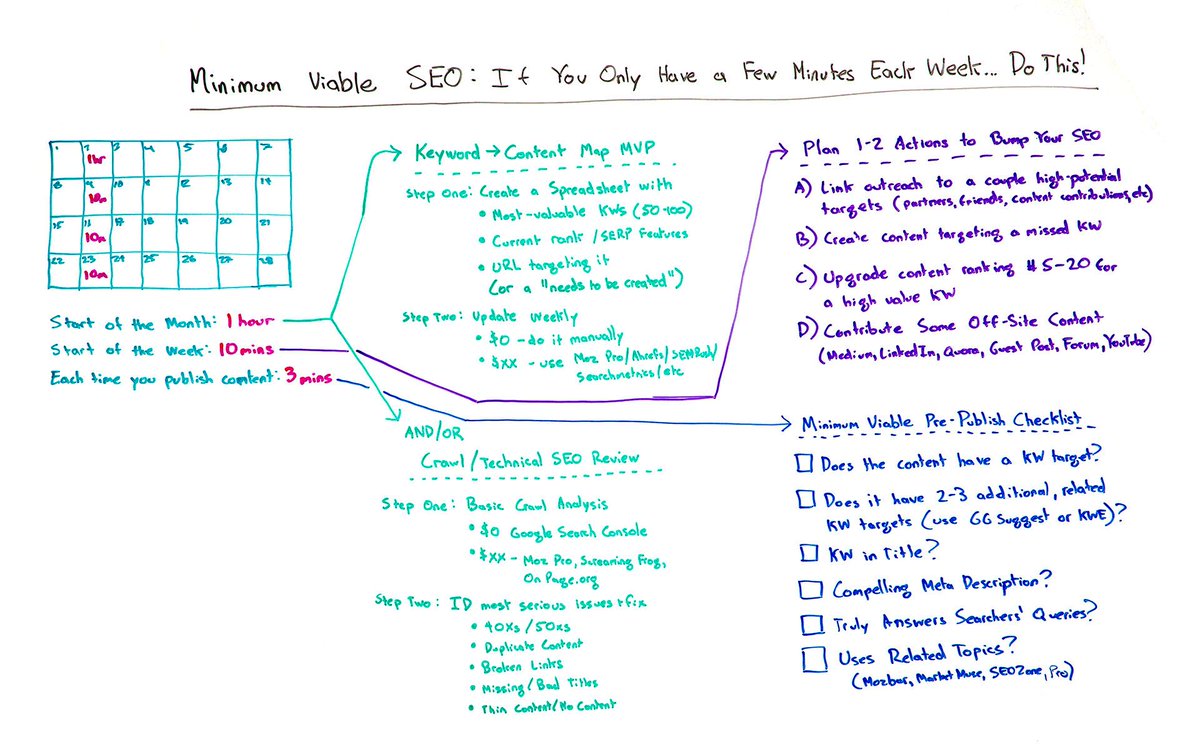 Minimum Viable SEO: If You Only Have a Few Minutes Each Week... Do This!
1 2 3 4 5 6 7
1hr
8 9 10 11 12 13 14
10m
15 16 17 18 19 20 21
10m
22 23 24 25 26 27 28
10m
Start of the Month: 1 hour
Start of the Week: 10 mins
Each time you publish content: 3 mins
Keyword → Content Map MVP
Step One: Create a Spreadsheet with
• Most-valuable KWs (50-100)
• Current rank/SERP Features
• URL targeting it
(or a "needs to be created")
Step Two: Update Weekly
• $0 - do it manually
• $XX - use Moz Pro/Ahrefs/SEMRush/
Searchmetrics/etc
AND/OR
Crawl/Technical SEO Review
Step One: Basic Crawl Analysis
• $0 Google Search Console
• $XX - Moz Pro, Screaming Frog,
OnPage.org
Step Two: ID most serious issues + fix
• 40xs/50xs
• Duplicate Content
• Broken Links
• Missing/Bad Titles
• Thin Content/No Content
Plan 1-2 Actions to Bump Your SEO
A) Link outreach to a couple high-potential
targets (partners, friends, content contributions, etc)
B) Create content targeting a missed KW
C) Upgrade content ranking #5-20 for
a high value KW
D) Contribute Some Off-Site Content
(Medium, LinkedIn, Quora, Guest Post, Forum, YouTube)
Minimum Viable Pre-Publish Checklist
Does the content have a KW target?
Does it have 2-3 additional, related
KW targets (use GG Suggest or KWE)?
KW in Title?
Compelling Meta Description?
Truly Answers Searchers' Queries?
Uses Related Topics?
(Mozbar, Market Muse, SEOZone, Pro)